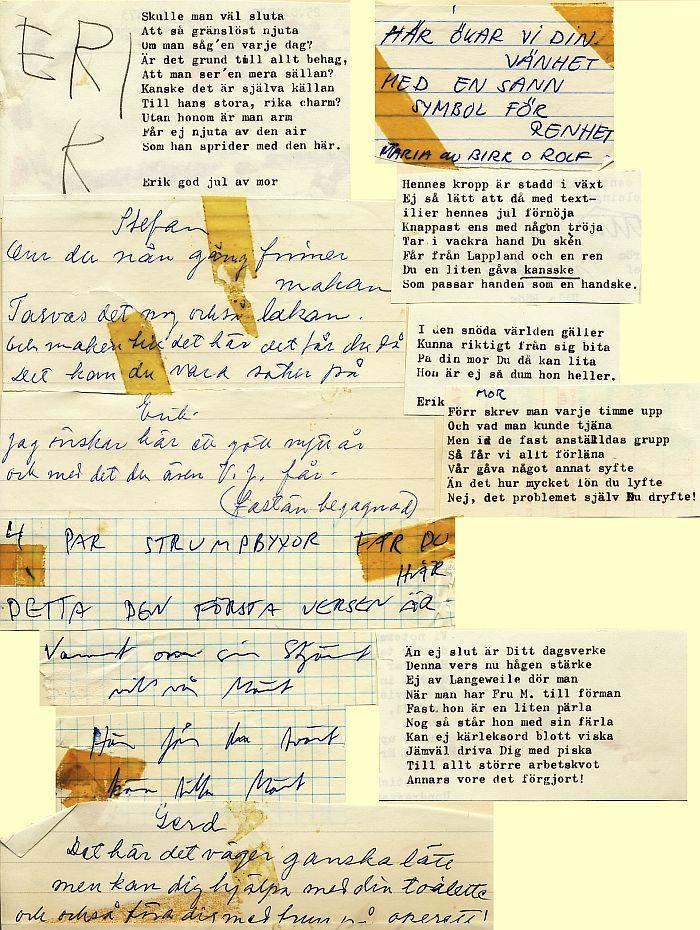 ERIK
Skulle man väl sluta
Att så gränslöst njuta
Om man såg'en varje dag?
Är det grund till allt behag,
Att man ser'en mera sällan?
Kanske det är själva källan
Till hans stora, rika charm?
Utan honom är man arm
Får ej njuta av den air
Som han sprider med den här.
Erik god jul av mor
HÄR ÖKAR VI DIN
VÄNHET
MED EN SANN
SYMBOL FÖR
RENHET
MARIA av BIRK O ROLF
Hennes kropp är stadd i växt
Ej så lätt att då med text-
ilier hennes jul förnöja
Knappast ens med någon tröja
Tar i vackra hand Du skèn
Får från Lappland och en ren
Du en liten gåva kansske
Som passar handen som en handske.
Stefan
Om du nån gång finner
makan
Tarvas det ny också lakan.
Och maken till det här det får du då
Det kan du vara säker på
I den snöda världen gäller
Kunna riktigt från sig bita
Pa din mor Du då kan lita
Hon är ej så dum hon heller.
Erik
MOR
Förr skrev man varje timme upp
Och vad man kunde tjäna
Men id de fast anställdas grupp
Så får vi allt förläna
Vår gåva något annat syfte
Än det hur mycket lön du lyfte
Nej, det problemet själv Du dryfte!
Erik
jag önskar här ett gott nytt år
och med det du även V. p. får
(fastän begagnad)
4 PAR STRUMPBYXOR FÅR DU
HÄR
DETTA DEN FÖRSTA VERSEN ÄR
Varmt om sin Stjärt
vill vår Märt
Än ej slut är Ditt dagsverke
Denna vers nu hågen stärke
Ej av Langeweile dör man
När man har Fru M. till förman
Fast hon är en liten pärla
Nog så står hon med sin färla
Kan ej kärleksord blott viska
Jämväl driva Dig med piska
Till allt större arbetskvot
Annars vore det förgjort!
Här får du tvärt
kära lilla Märt
Gerd
Det här det väger ganska lätt
men kan dig hjälpa med din toalette
och också föra dig med frun på operett!